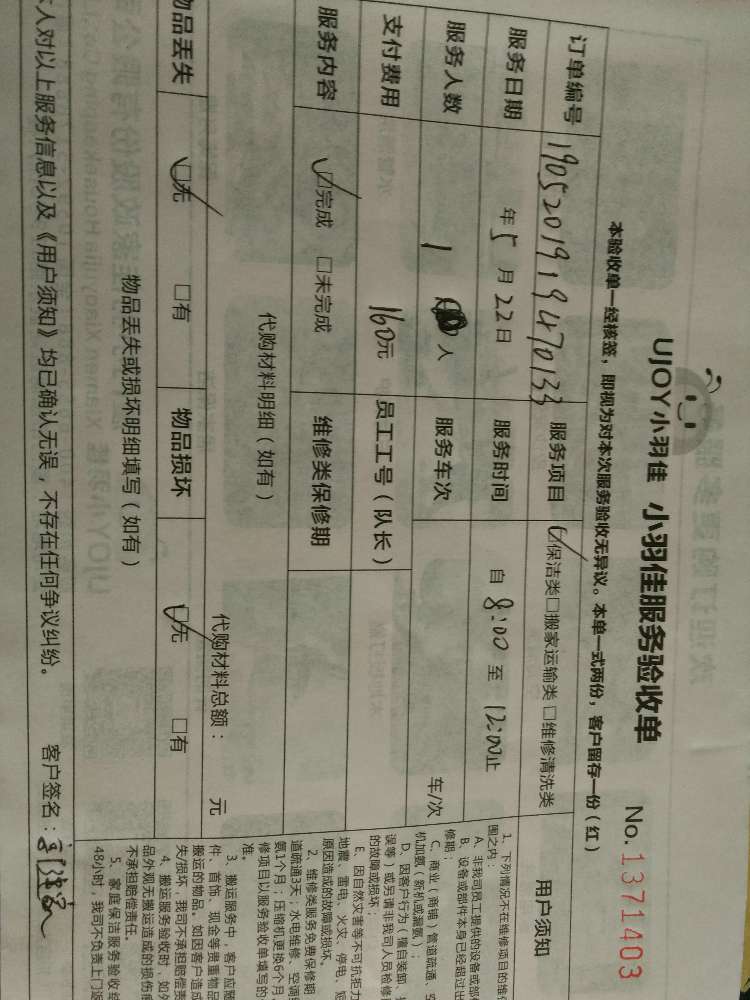 UJOY小羽佳 小羽佳服务验收单 No. 1371403
本验收单一经核签，即视为对本次服务验收无异议。本单一式两份，客户留存一份（红）
订单编号 19052019194470133 服务项目 ☑保洁类□搬家运输类 □维修清洗类
服务日期 年5月22日 服务时间 自8:00至12:00止
服务人数 1 人 服务车次 车/次
支付费用 160元 员工工号（队长）
服务内容 ☑完成 □未完成 维修类保修期
代购材料明细（如有） 代购材料总额： 元
物品丢失 ☑无 □有 物品损坏 ☑无 □有
物品丢失或损坏明细填写（如有）
本人对以上服务信息以及《用户须知》均已确认无误，不存在任何争议纠纷。 客户签名：
用户须知
1、下列情况不在维修项目的维
围之内：
A、非我司员工提供的设备或部
B、设备或部件本身已经超过
修期；
C、商业（商铺）管道疏通、空
机加氨（新机或漏氨）；
D、因客户行为（擅自装卸、
误等）或另请非我司人员抢修
的故障或损坏；
E、因自然灾害等不可抗拒力
地震、雷电、火灾、停电、
原因造成的故障或损坏。
2、维修类服务免费保修期
道疏通3天；水电维修、空调
氨1个月；压缩机更换6个月
修项目以服务验收单填写的
准。
3、搬运服务中，客户应
件、首饰、现金等贵重物品
搬运的物品。如因客户造成
失/损坏，我司不承担赔偿责
4、搬运服务验收时，如
品外观无搬运造成的损伤
不承担赔偿责任。
5、家庭保洁服务验收
48小时，我司不负责上门